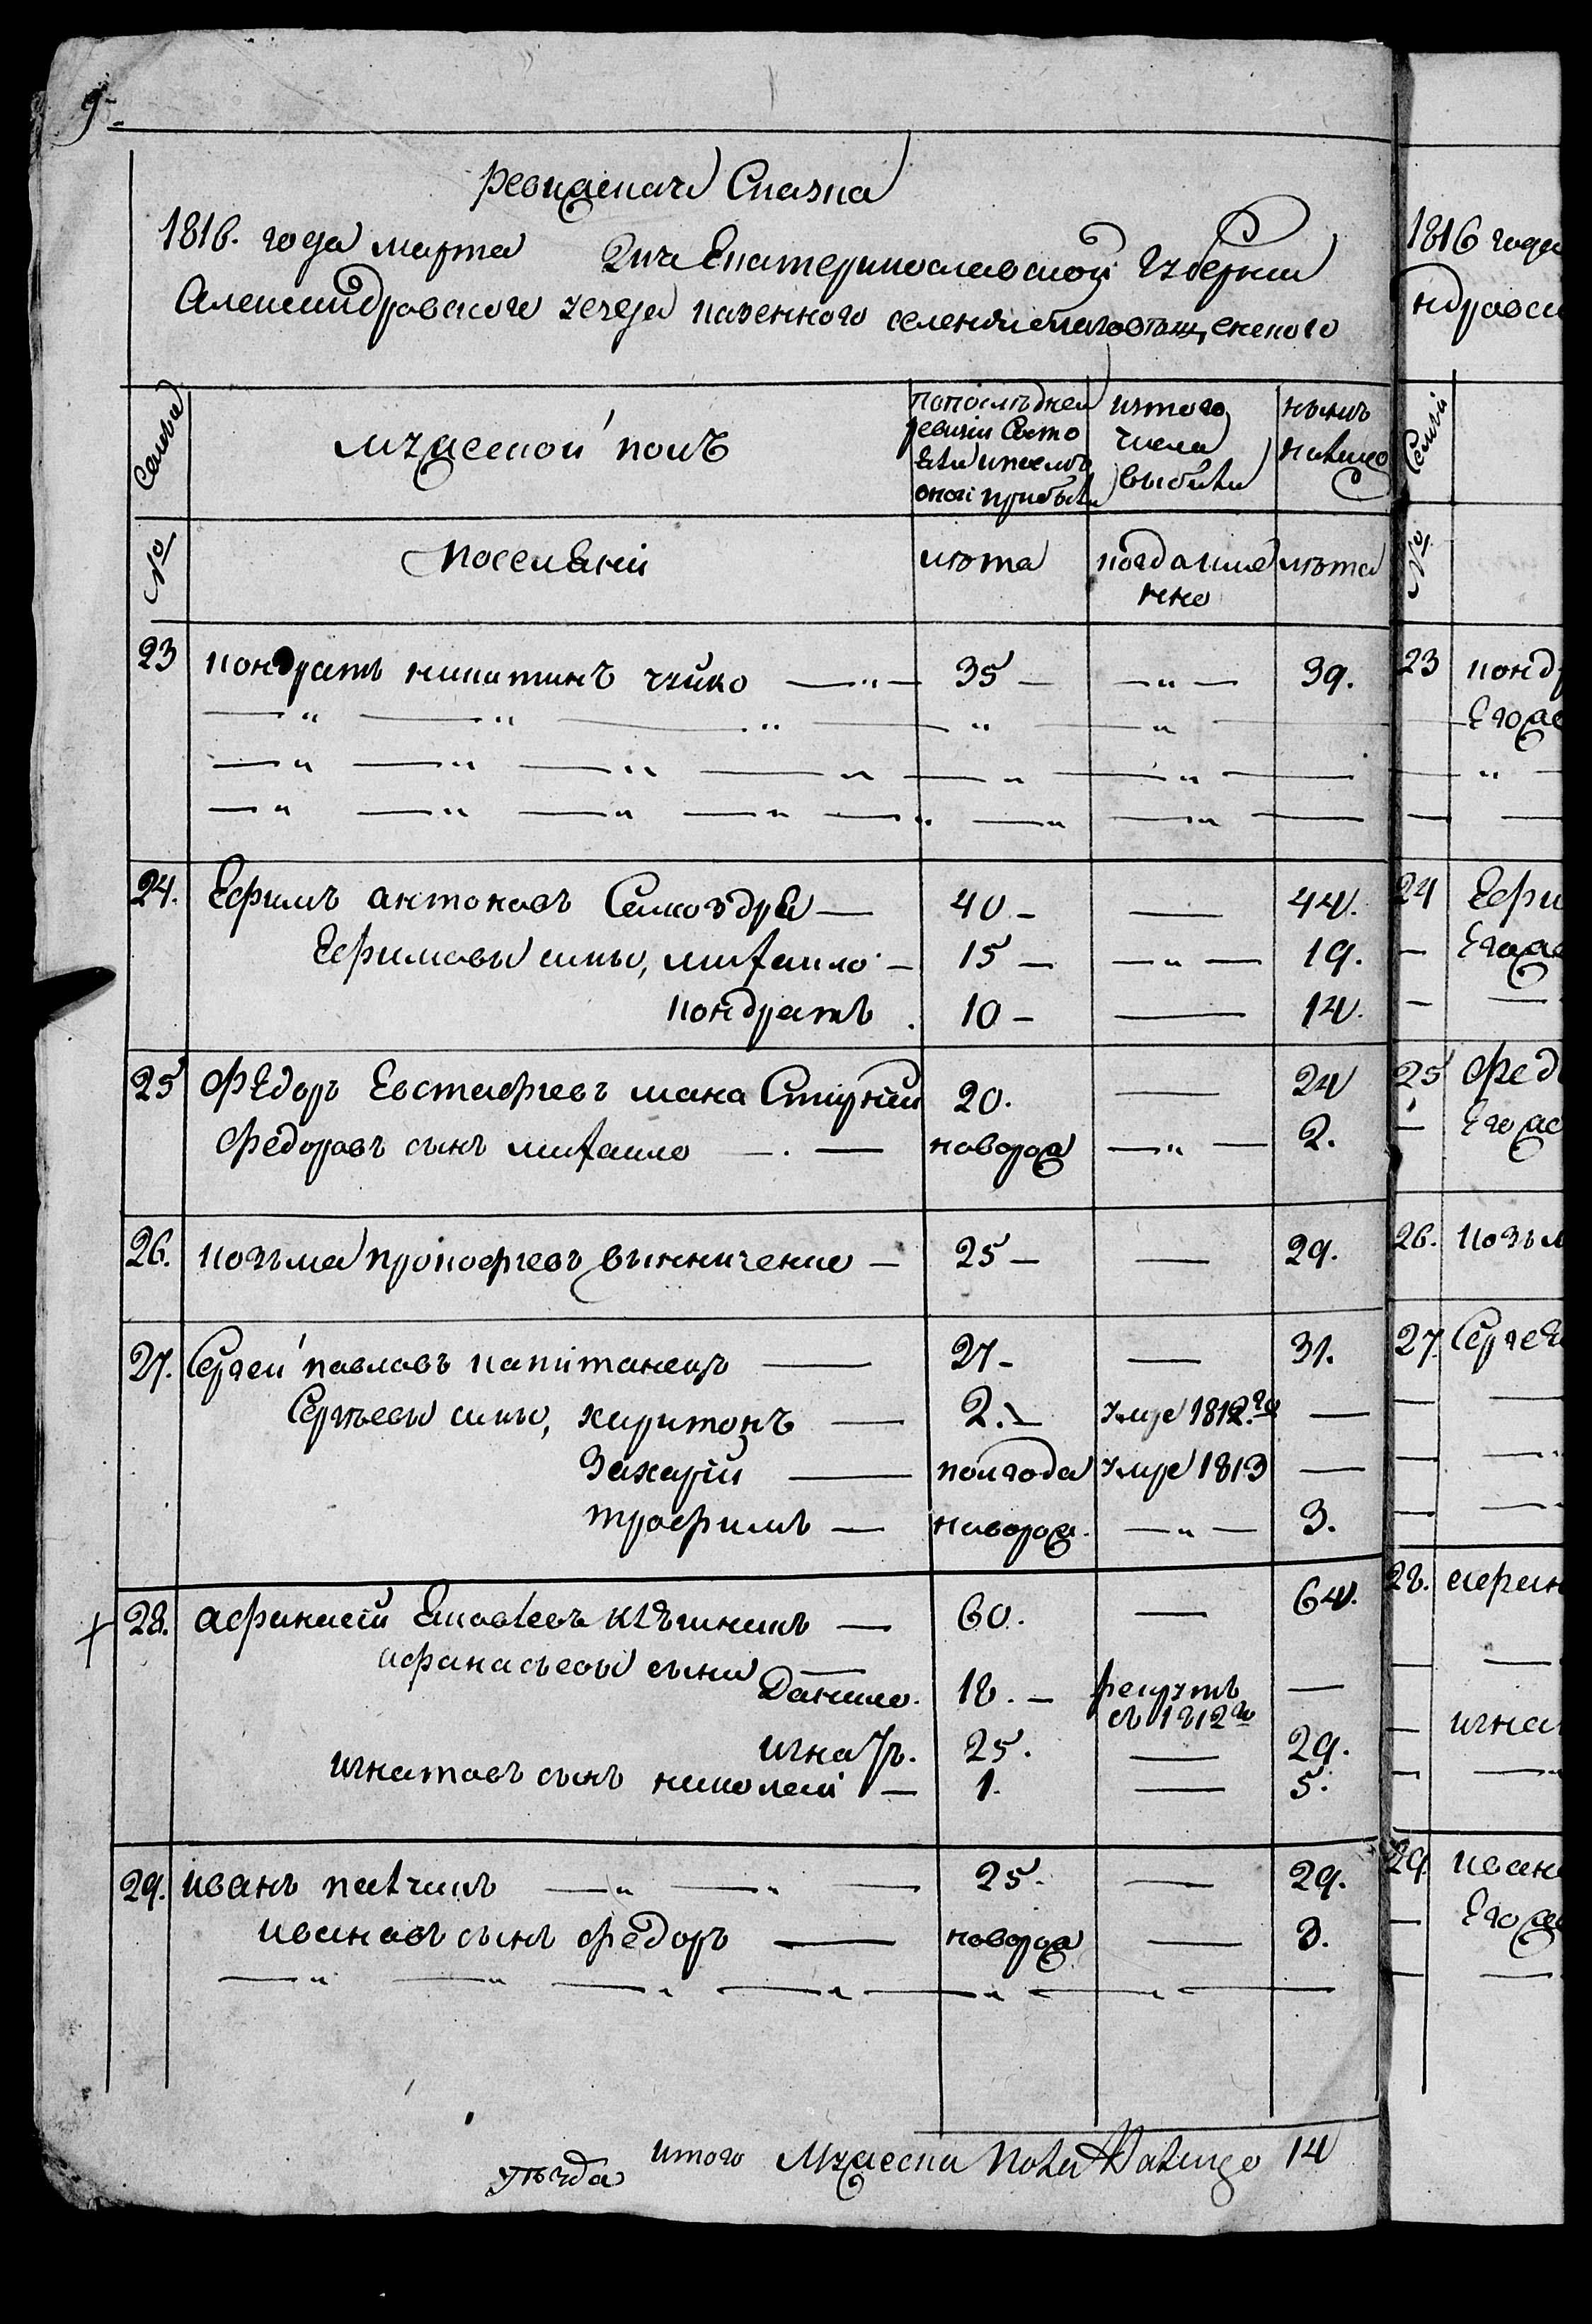 9
ревижская Сказка
1816. года марта дня Екатеринославской губернии
Александровского уезда казенного селения благовещенского
Семья
мужеской полъ
по последней ревизии Состояли и после оной прибыли
из того числа выбыли
ныне налицо
№
поселяни
лѣта
когда именно
лѣта
23 кондратъ никитинъ чуйко —"— 35 — —"— 39.
24. Ефимъ антоновъ Самоздра — 40 — — 44.
Ефимовы сины, михайло — 15 — —"— 19.
кондратъ . 10 — — 14.
25 Федоръ Евстафиевъ мана 20. — 24
Федоровъ сынъ михайло — . — новорож —"— 2.
26. козьма прокофиевъ винниченко — 25 — — 29.
27. Сергей павловъ капитанецъ — 27 — — 31.
Сергѣевы сины, харитонъ — 2. — умре 1812.го —
Захарій — полгода умре 1813 —
трофимъ — новорож. —"— 3.
28. афанасій Яковлевъ — 60. — 64.
афанасьевы сыни —
Данило. 18. — рекрутъ съ 1812го —
игнатъ. 25. — 29.
игнатовъ сынъ николай — 1. — 5.
29. иванъ —"—"— 25. — 29.
ивановъ сынъ федоръ — новорож — 3.
итого Мужеска пола налицо 14
уѣзда
1816 года
ндровск
Семьи
№
23 конд
Его же
24 Ефи
Его же
25 Фед
Его же
26. козьм
27. Сергея
28. афан
игна
29 ивана
Его же